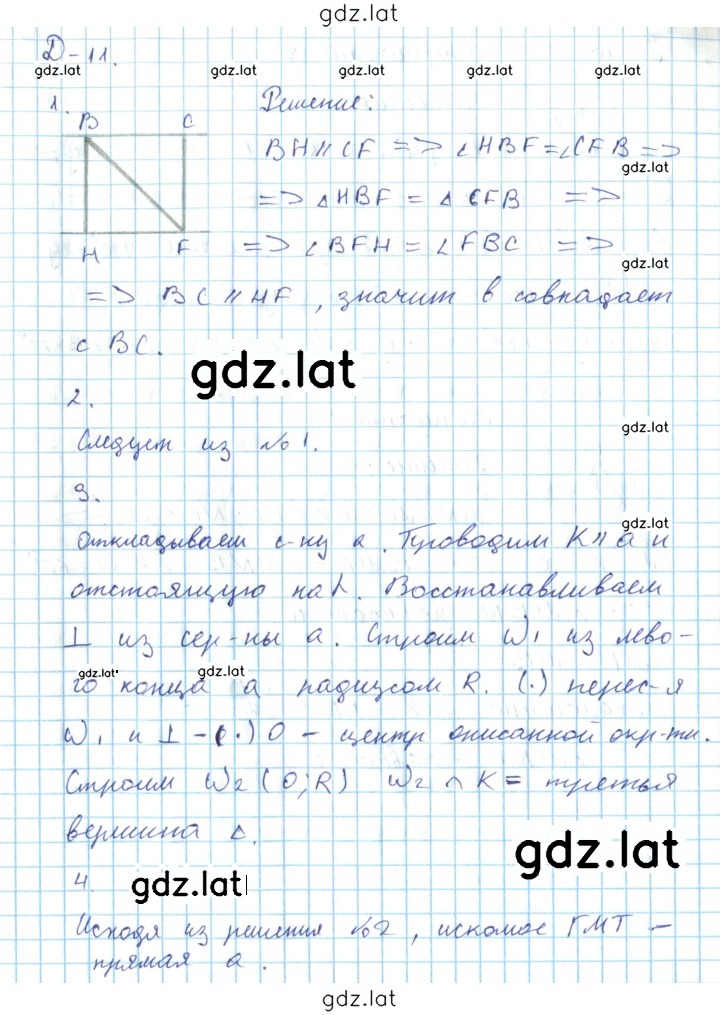 gdz.lat
Д-11.
gdz.lat gdz.lat gdz.lat gdz.lat gdz.lat
1. Решение:
B C
BH ∥ CF => ∠HBF = ∠CFB =>
gdz.lat
=> △HBF = △CFB =>
H F => ∠BFH = ∠FBC =>
gdz.lat
=> BC ∥ HF, значит в совпадает
с BC.
gdz.lat
2.
gdz.lat
Следует из №1.
3.
gdz.lat
Откладываем с-ну a. Проводим K ∥ a и
отстоящую на h. Восстанавливаем
⊥ из сер-ны a. Строим W₁ из лево-
gdz.lat gdz.lat
го конца a радиусом R. (·) перес-я
W₁ и ⊥ - (·) O - центр описанной окр-ти.
Строим W₂ (O; R) W₂ ∩ K = третья
вершина △.
gdz.lat
4.
gdz.lat
Исходя из решения №2, искомое ГМТ -
прямая a.
gdz.lat